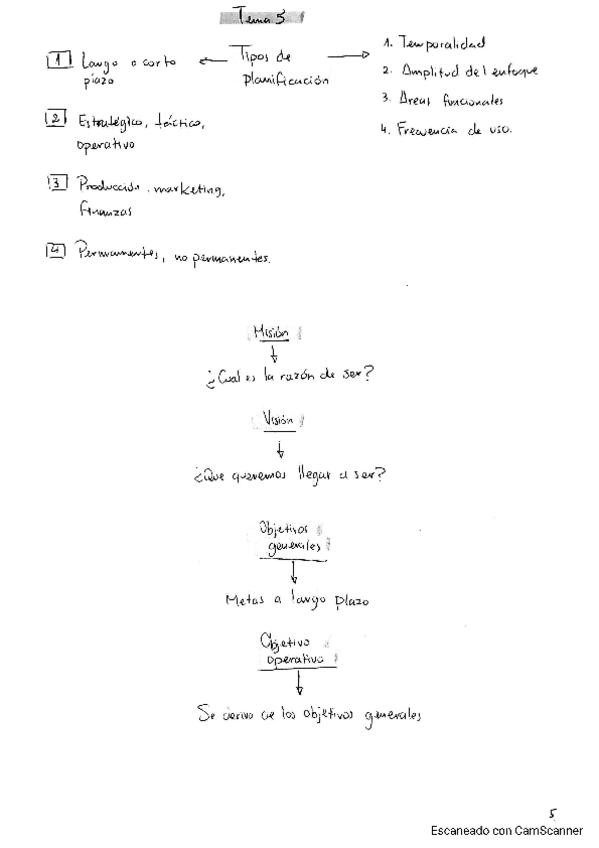 Tema 5
Tipos de
planificación
1 Largo o corto
plazo
2 Estratégico, táctico,
operativo
3 Producción, marketing,
finanzas
4 Permanentes, no permanentes.
1. Temporalidad
2. Amplitud del enfoque
3. Areas funcionales
4. Frecuencia de uso.
Misión
¿Cual es la razón de ser?
Visión
¿Que queremos llegar a ser?
Objetivos
generales
Metas a largo plazo
Objetivo
operativo
Se deriva de los objetivos generales
5
Escaneado con CamScanner